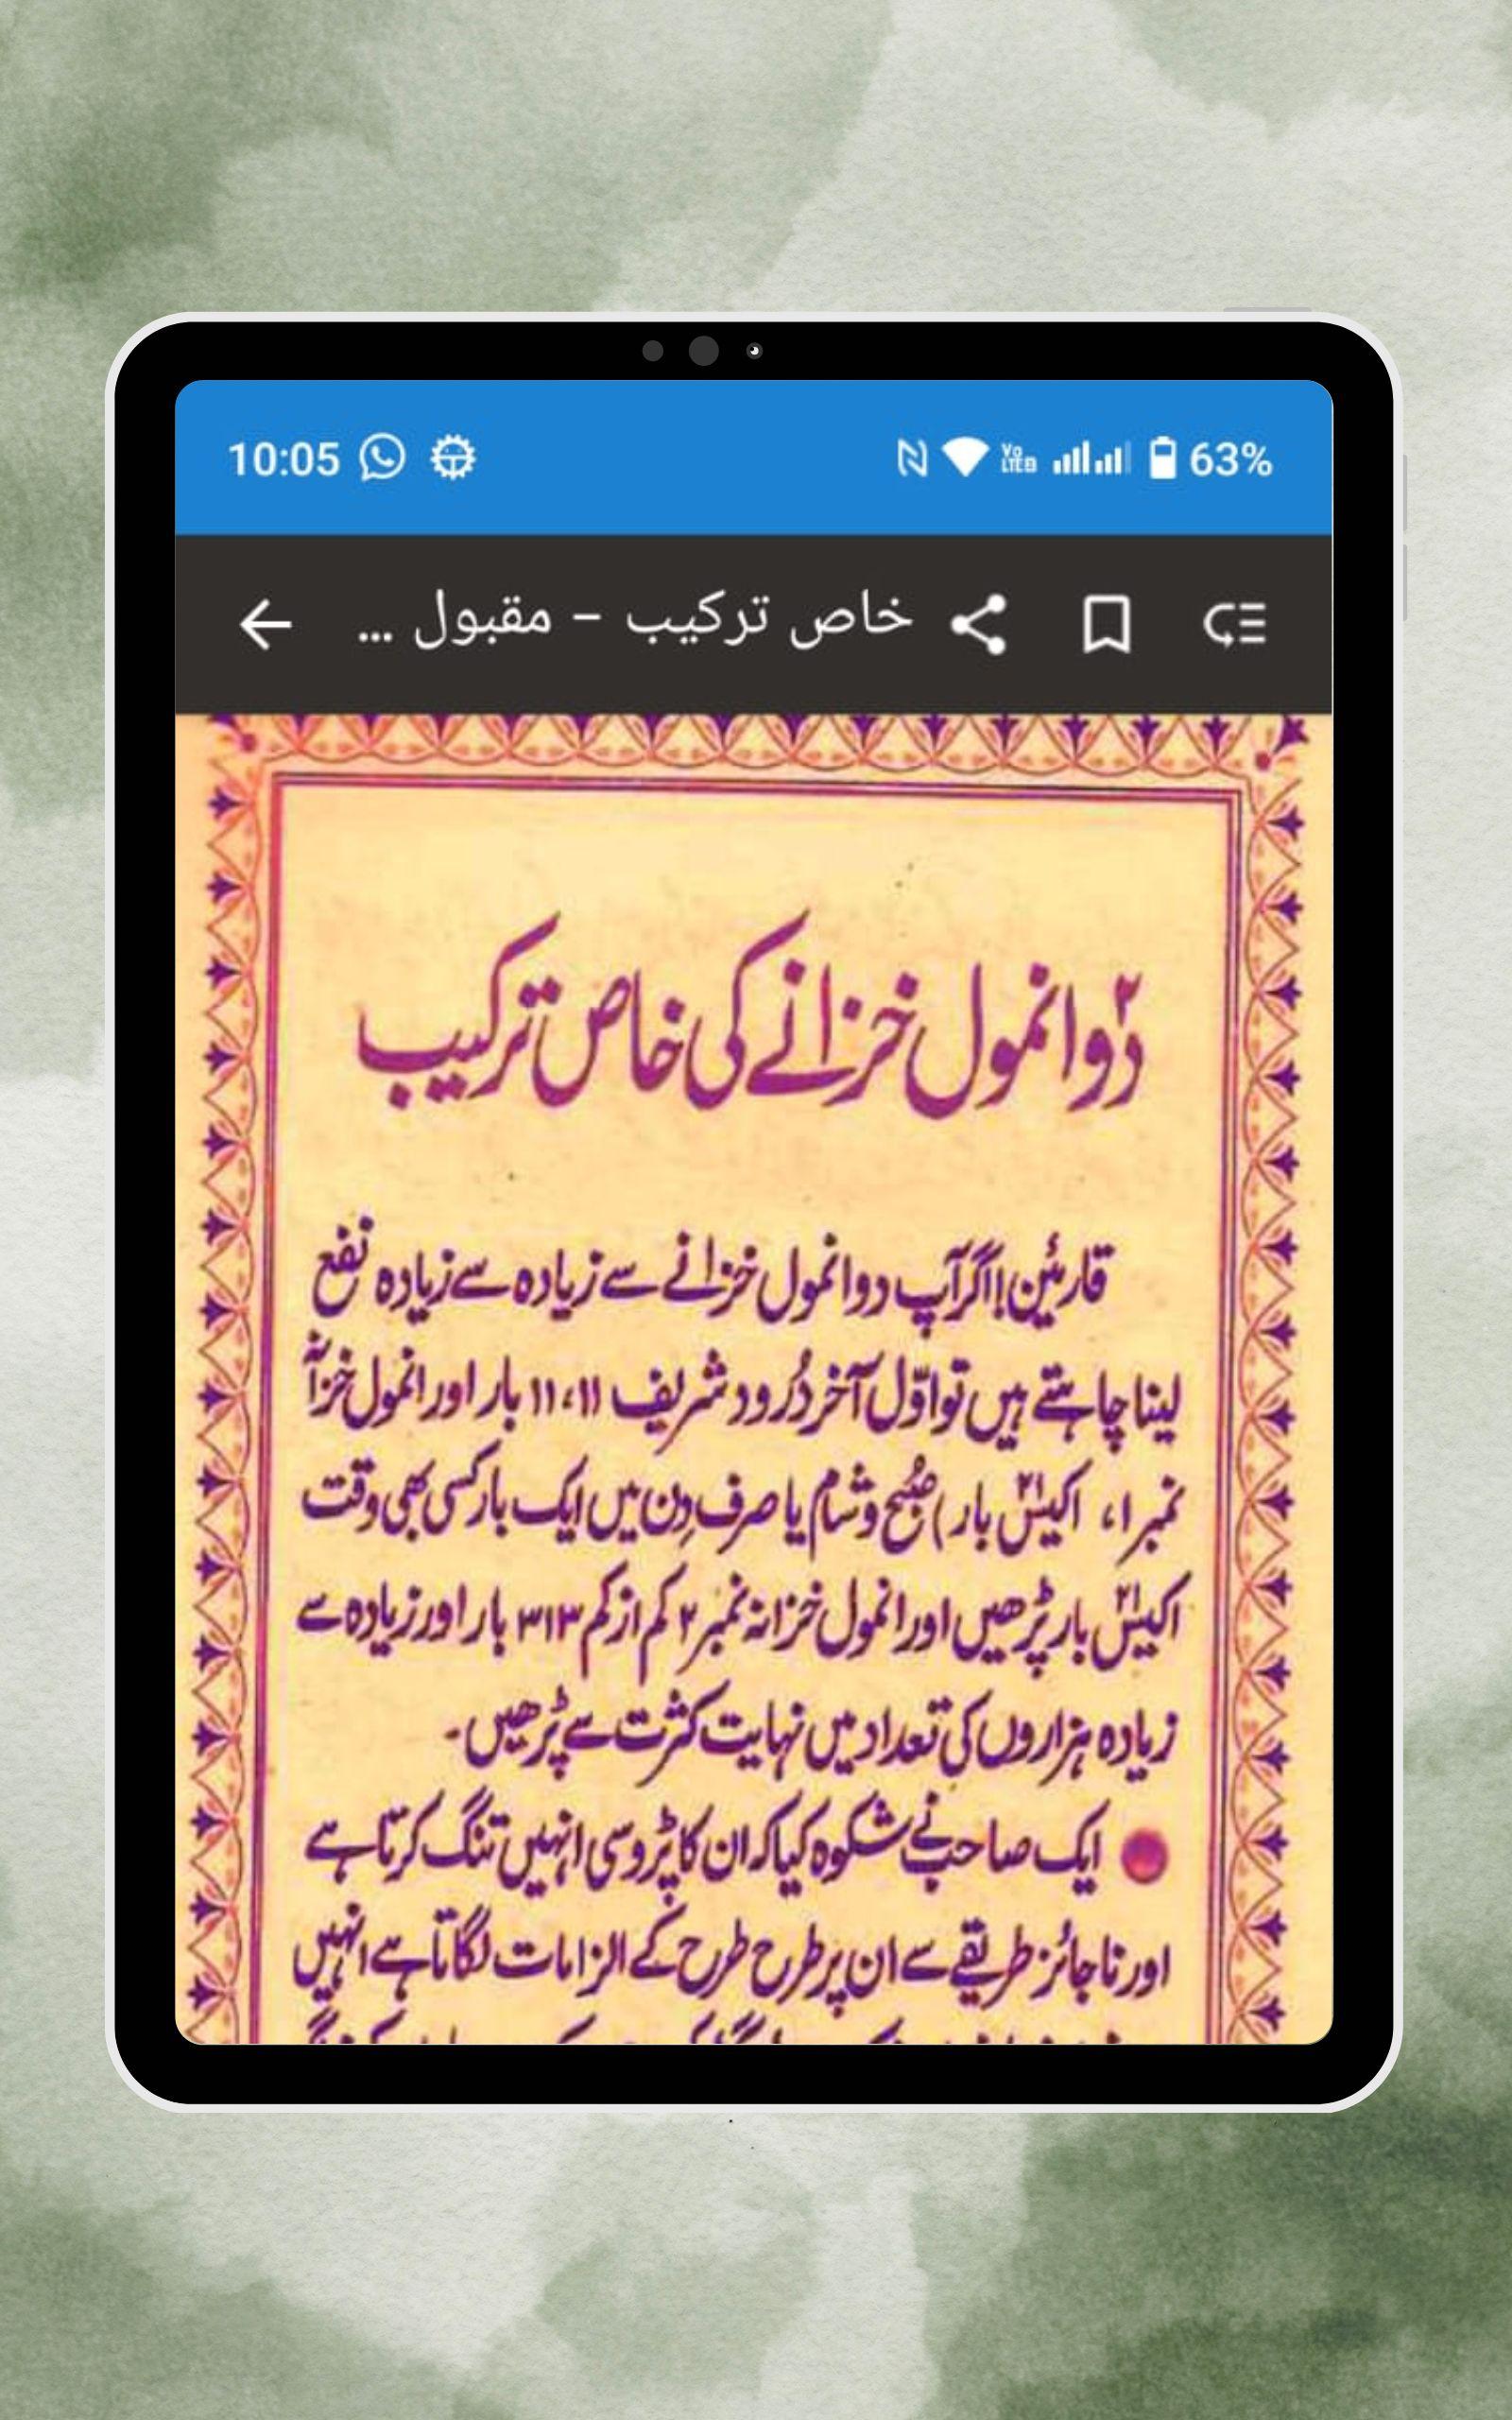 10:05 63%
خاص ترکیب – مقبول ...
دو۲ انمول خزانے کی خاص ترکیب
قارئین! اگر آپ دو انمول خزانے سے زیادہ سے زیادہ نفع
لینا چاہتے ہیں تو اوّل آخر دُرود شریف ۱۱،۱۱ بار اور انمول خزانہ
نمبر ۱، اکیس۲۱ بار (صُبح و شام یا صرف دِن میں ایک بار کسی بھی وقت
اکیس۲۱ بار پڑھیں اور انمول خزانہ نمبر ۲ کم از کم ۳۱۳ بار اور زیادہ سے
زیادہ ہزاروں کی تعداد میں نہایت کثرت سے پڑھیں۔
ایک صاحب نے شکوہ کیا کہ ان کا پڑوسی انہیں تنگ کرتا ہے
اور ناجائز طریقے سے ان پر طرح طرح کے الزامات لگاتا ہے انہیں